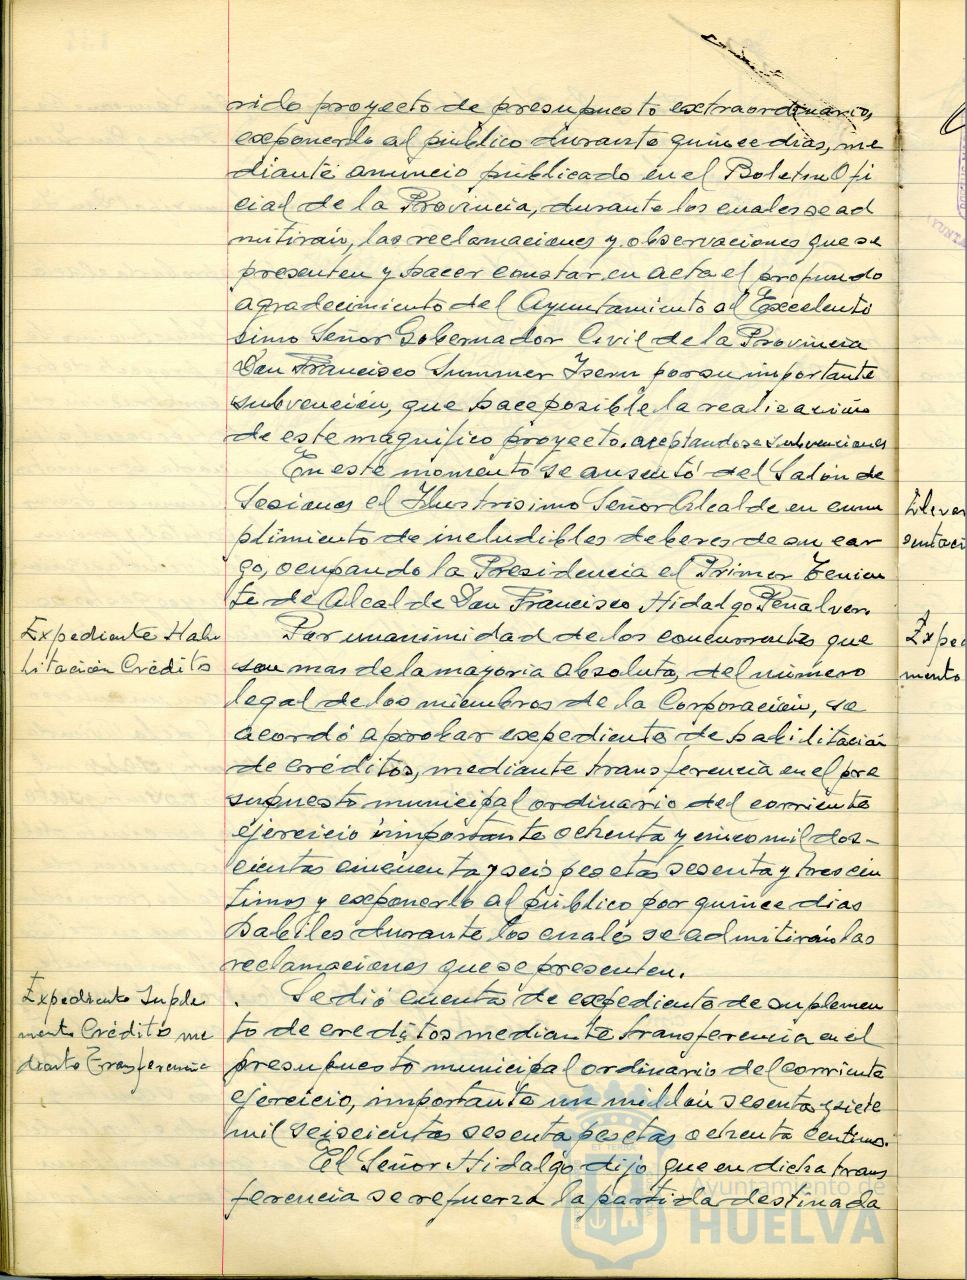 rido proyecto de presupuesto extraordinario,
exponerlo al público durante quince dias, me
diante anuncio publicado en el Boletin Ofi
cial de la Provincia, durante los cuales se ad
mitirán, las reclamaciones y observaciones que se
presenten y hacer constar en acta el profundo
agradecimiento del Ayuntamiento al Excelentí
simo Señor Gobernador Civil de la Provincia
Don Francisco Summer Isern por su importante
subvención, que hace posible la realización
de este magnifico proyecto. aceptandose subvenciones
En este momento se ausentó del Salón de
Sesiones el Ilustrisimo Señor Alcalde en cum
plimiento de includibles deberes de su car
go, ocupando la Presidencia el Primer Tenien
te de Alcalde Don Francisco Hidalgo Peñalver.
Expediente Habi
litación Crédito
Por unanimidad de los concurrentes que
son mas de la mayoria absoluta, del número
legal de los miembros de la Corporación, se
acordó aprobar expediente de habilitación
de créditos, mediante transferencia en el pre
supuesto municipal ordinario del corriente
ejercicio importante ochenta y cinco mil dos-
cientas cincuenta y seis pesetas sesenta y tres cén
timos y exponerlo al público por quince dias
habiles durante los cuales se admitirán las
reclamaciones que se presenten.
Expediente Suple
mento Crédito me
diante Transferencia
Se dió cuenta de expediente de suplemen
to de creditos mediante transferencia en el
presupuesto municipal ordinario del corriente
ejercicio, importante un millón sesenta y siete
mil seiscientas sesenta pesetas ochenta centimos.
El Señor Hidalgo dijo que en dicha trans
ferencia se refuerza la partida destinada
Elevar
Expe
mento
Ayuntamiento de
HUELVA